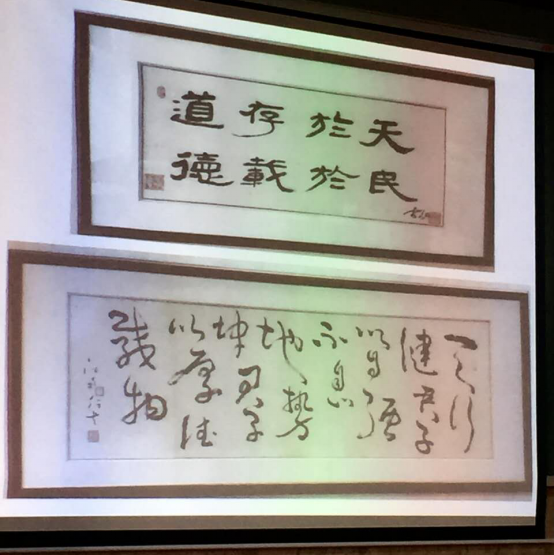 道存於天
德載於民
天行
健君子
以自强
不息
地勢
坤君子
以厚德
載物